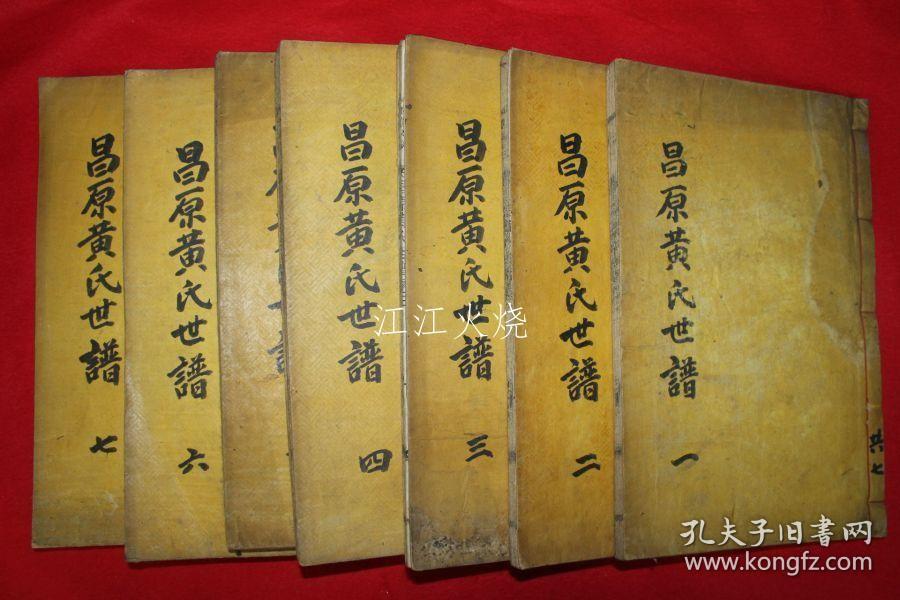 昌原黄氏世譜 一
共七
昌原黄氏世譜 二
昌原黄氏世譜 三
昌原黄氏世譜 四
昌原黄氏世譜 六
昌原黄氏世譜 七
江江火烧
孔夫子旧書网
www.kongfz.com